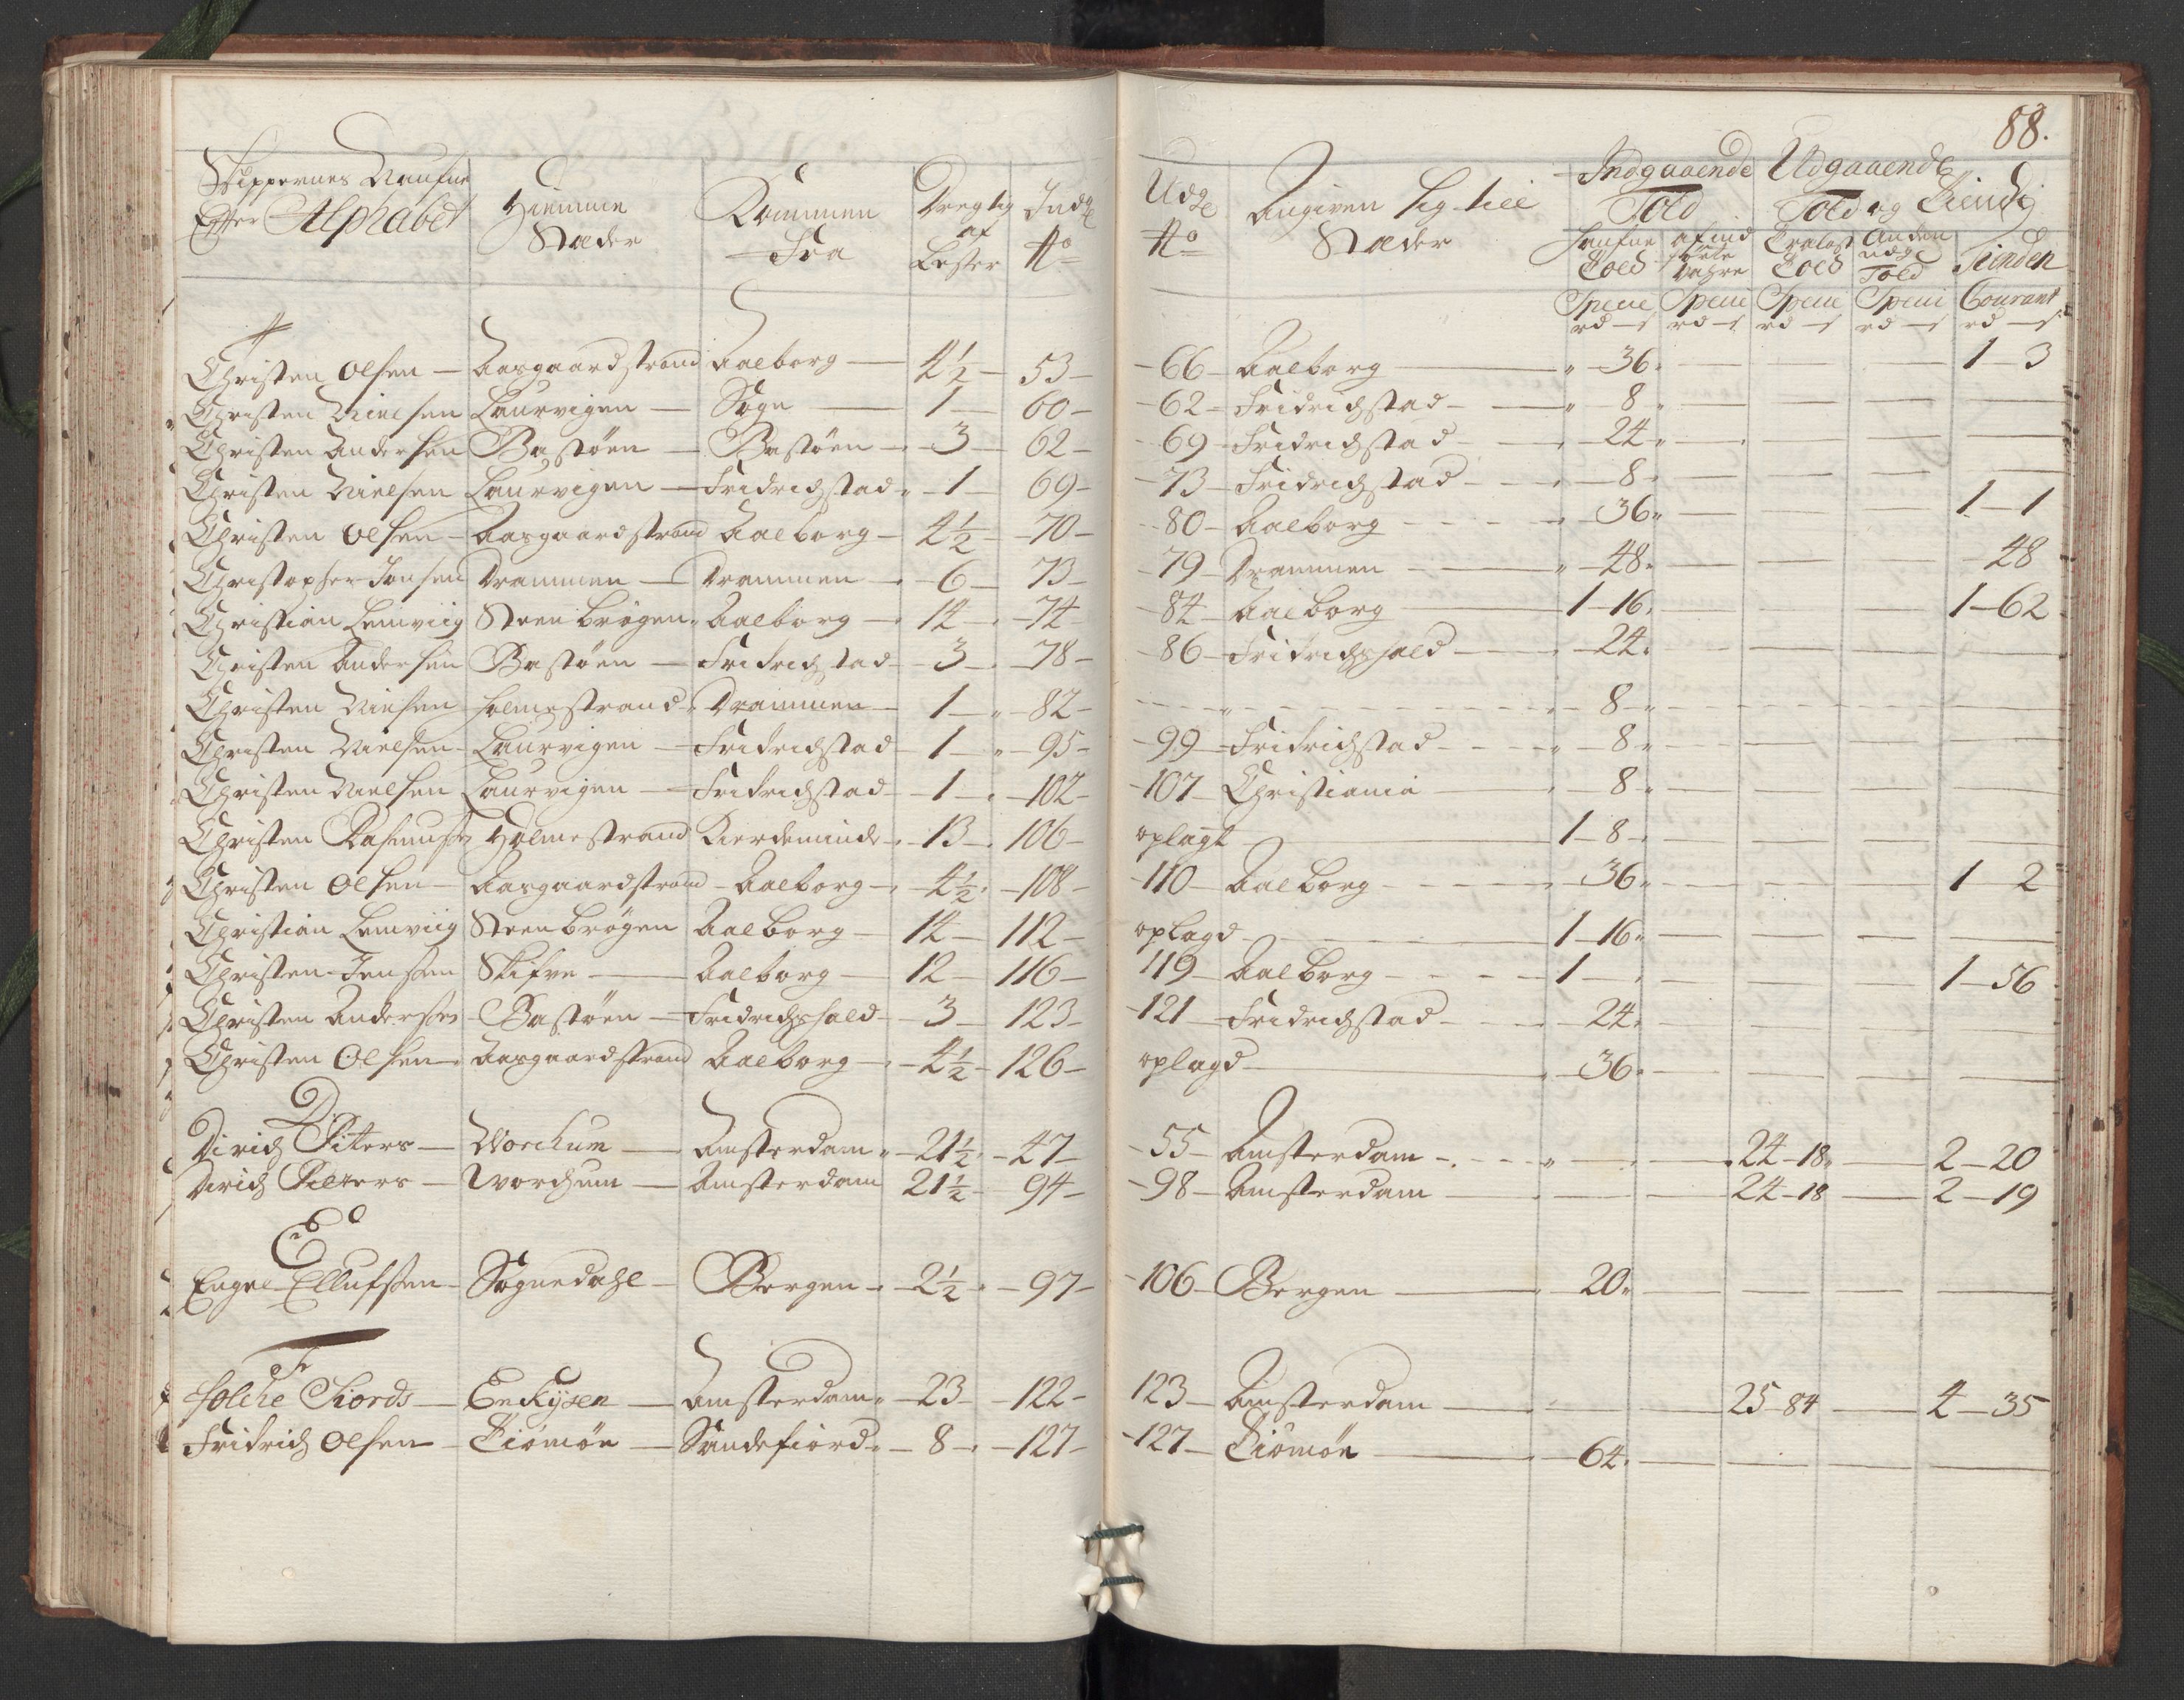 88.
Skippernes Naufne Efter Alphabet
Hiemme Stæder
Kommen Fra
Dregtig af Lester
Indg No
Udg No
Angiven sig til Stæder
Indgaaende Told
Udgaaende Told og Tiende
Haufne Told
af indførte Vahre
Trælast Told
Anden udg Told
Tienden
Specie rd s
Specie rd s
Specie rd s
Specie rd s
Courant rd s
Christen Olsen — Aasgaardstrand Aalborg — 4 1/2 — 53 — 66 — Aalborg — 36 — 1 — 3
Christen Nielsen Laurvigen — Sogn — 1 — 60 — 62 — Fridrichstad — 8
Christen Andersen Bastöen — Bastöen — 3 — 62 — 69 — Fridrichstad — 24
Christen Nielsen Laurvigen — Fridrichstad — 1 — 69 — 73 — Fridrichstad — 8
Christen Olsen — Aasgaardstrand Aalborg — 4 1/2 — 70 — 80 — Aalborg — 36 — 1 — 1
Christopher Jonsen Drammen — Drammen — 6 — 73 — 79 — Drammen — 48 — 48
Christian Lemviig Steenbrögen Aalborg — 14 — 74 — 84 — Aalborg — 1 — 16 — 1 — 62
Christen Andersen Bastöen — Fridrichstad — 3 — 78 — 86 — Fridrichshald — 24
Christen Nielsen Holmestrand Drammen — 1 — 82 — 8
Christen Nielsen — Laurvigen — Fridrichstad — 1 — 95 — 99 — Fridrichstad — 8
Christen Nielsen Laurvigen — Fridrichstad — 1 — 102 — 107 — Christiania — 8
Christen Rasmussen Holmestrand Kierdeminde — 13 — 106 — oplagt — 1 — 8
Christen Olsen — Aasgaardstrand — Aalborg — 4 1/2 — 108 — 110 — Aalborg — 36 — 1 — 2
Christian Lemviig Steenbrögen Aalborg — 14 — 112 — oplagd — 1 — 16
Christen Jensen Skifve — Aalborg — 12 — 116 — 119 — Aalborg — 1 — 1 — 56
Christen Andersen — Bastöen — Fridrichshald — 3 — 123 — 121 — Fridrichstad — 24
Christen Olsen — Aasgaardstrand Aalborg — 4 1/2 — 126 — oplagd — 36
D
Dirich Pitters — Worchum — Amsterdam — 21 1/2 — 47 — 55 — Amsterdam — 24 — 18 — 2 — 20
Dirich Pieters — Worchum — Amsterdam 21 1/2 — 94 — 98 — Amsterdam — 24 — 18 — 2 — 19
E
Engel Ellufsen — Sognedahl — Bergen — 2 1/2 — 97 — 106 — Bergen — 20
F
Folche Siords — Enkijsen — Amsterdam — 23 — 122 — 123 — Amsterdam — 25 — 84 — 4 — 35
Fridrich Olsen — Tiömöe — Sandefiord — 8 — 127 — 127 — Tiömöe — 64